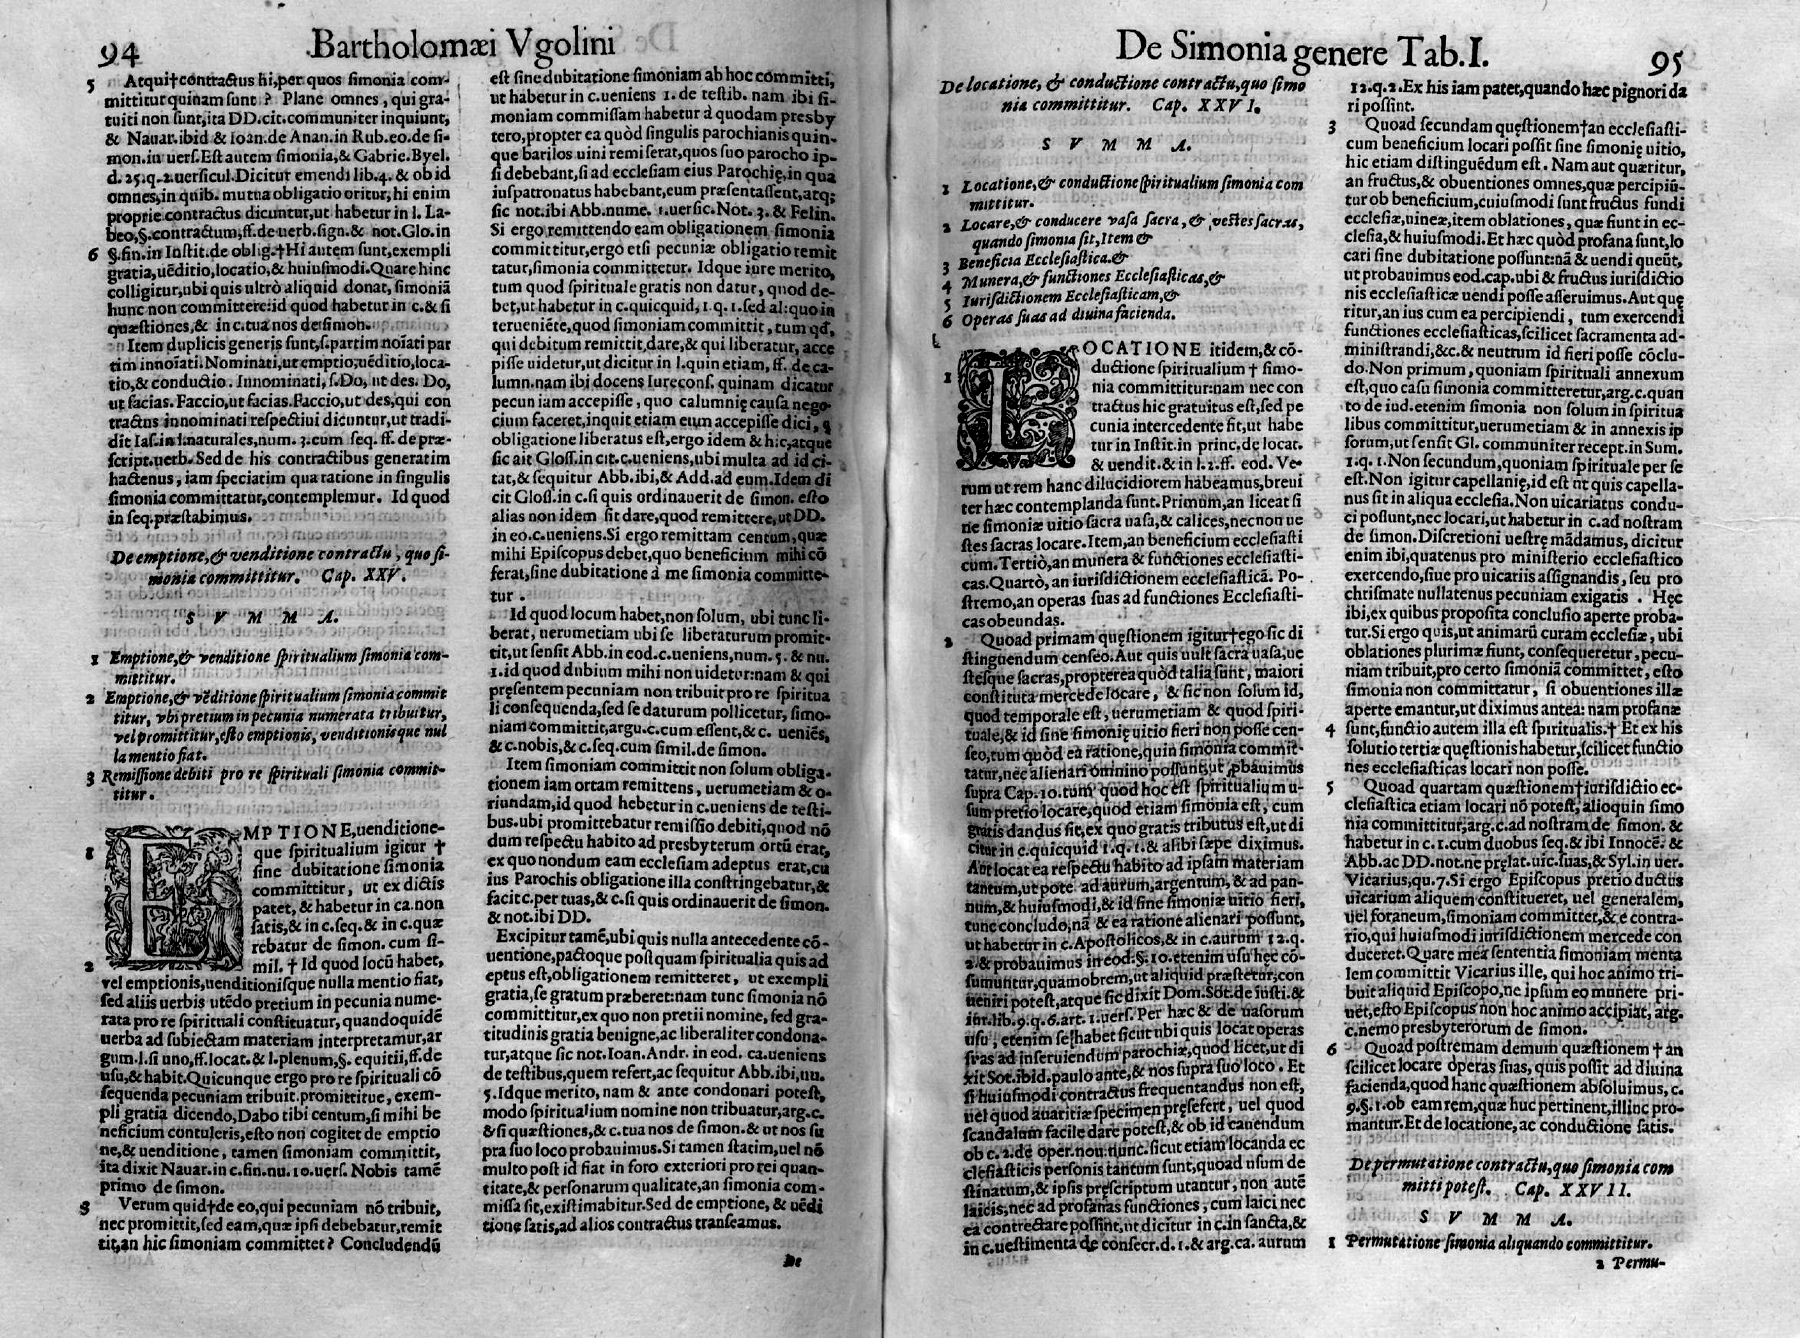 94
Bartholomæi Vgolini
5 Atqui†contractus hi,per quos simonia com-
mittitur quinam sunt? Plane omnes, qui gra-
tuiti non sunt,ita DD.cit.communiter inquiunt,
& Nauar.ibid & Ioan.de Anan.in Rub.eo.de si-
mon.in uers.Est autem simonia,& Gabrie. Byel.
d. 25.q.2.uersicul.Dicitur emendi lib.4. & ob id
omnes,in quib. mutua obligatio oritur,hi enim
proprie contractus dicuntur,ut habetur in l. La-
beo,§.contractum,ff.de uerb.sign.& not.Glo.in
6 §.fin.in Instit.de oblig.†Hi autem sunt,exempli
gratia,uẽditio,locatio,& huiusmodi.Quare hinc
colligitur,ubi quis ultrò aliquid donat, simoniã
hunc non committere:id quod habetur in c.& si
quæstiones,& in c.tua nos de simon.
Item duplicis generis sunt,ſ.partim noĩati par
tim innoĩati. Nominati,ut emptio,uẽditio,loca-
tio,& conductio. Innominati, ſ.Do, ut des. Do,
ut facias. Faccio,ut facias.Faccio,ut des,qui con
tractus innominati respectiui dicuntur,ut tradi-
dit Ias.in l.naturales,num. 3.cum seq. ff. de præ-
script.uerb. Sed de his contractibus generatim
hactenus, iam speciatim qua ratione in singulis
simonia committatur,contemplemur. Id quod
in seq.præstabimus.
De emptione,& venditione contractu, quo si-
monia committitur. Cap. XXV.
S V M M A.
1 Emptione,& venditione spiritualium simonia com-
mittitur.
2 Emptione,& vẽditione spiritualium simonia commit
titur, vbi pretium in pecunia numerata tribuitur,
vel promittitur,esto emptionis, venditionisque nul
la mentio fiat.
3 Remissione debiti pro re spirituali simonia commit-
titur.
1 EMPTIONE,uenditione-
que spiritualium igitur †
sine dubitatione simonia
committitur, ut ex dictis
patet, & habetur in ca.non
satis,& in c.seq.& in c.quæ
rebatur de simon. cum si-
2 mil. † Id quod locũ habet,
vel emptionis,uenditionisque nulla mentio fiat,
sed aliis uerbis utẽdo pretium in pecunia nume-
rata pro re spirituali constituatur, quandoquidẽ
uerba ad subiectam materiam interpretamur,ar
gum.l.si uno,ff.locat.& l.plenum,§. equitii,ff.de
usu,& habit.Quicunque ergo pro re spirituali cõ
sequenda pecuniam tribuit.promittitue, exem-
pli gratia dicendo,Dabo tibi centum,si mihi be
neficium contuleris,esto non cogitet de emptio
ne,& uenditione, tamen simoniam committit,
ita dixit Nauar.in c.fin.nu.10.uers. Nobis tamẽ
primo de simon.
3 Verum quid†de eo,qui pecuniam nõ tribuit,
nec promittit,sed eam,quæ ipsi debebatur,remit
tit,an hic simoniam committet? Concludendũ
est sine dubitatione simoniam ab hoc committi,
ut habetur in c.ueniens 1. de testib. nam ibi si-
moniam commissam habetur à quodam presby
tero,propter ea quòd singulis parochianis quin-
que barilos uini remiserat,quos suo parocho ip-
si debebant,si ad ecclesiam eius Parochię,in qua
iuspatronatus habebant,eum præsentassent,atq;
sic not.ibi Abb.nume. 1.uersic.Not. 3. & Felin.
Si ergo remittendo eam obligationem simonia
committitur,ergo etsi pecuniæ obligatio remit
tatur,simonia committetur. Idque iure merito,
tum quod spirituale gratis non datur, quod de-
bet,ut habetur in c.quicquid,1.q.1.sed aliquo in
terueniẽte,quod simoniam committit, tum qđ,
qui debitum remittit,dare,& qui liberatur, acce
pisse uidetur,ut dicitur in l.quin etiam, ff. de ca-
lumn.nam ibi docens Iureconſ. quinam dicatur
pecuniam accepisse, quo calumnię causa nego-
cium faceret,inquit etiam eum accepisse dici, q̃
obligatione liberatus est,ergo idem & hic,atque
sic ait Gloss.in cit.c.ueniens,ubi multa ad id ci-
tat,& sequitur Abb.ibi,& Add.ad eum.Idem di
cit Gloss.in c.si quis ordinauerit de simon. esto
alias non idem sit dare,quod remittere,ut DD.
in eo.c.ueniens.Si ergo remittam centum,quæ
mihi Episcopus debet,quo beneficium mihi cõ
ferat,sine dubitatione à me simonia committe-
tur.
Id quod locum habet,non solum, ubi tunc li-
berat, uerumetiam ubi se liberaturum promit-
tit,ut sensit Abb.in eod.c.ueniens,num.5.& nu.
1.id quod dubium mihi non uidetur:nam & qui
pręsentem pecuniam non tribuit pro re spiritua
li consequenda,sed se daturum pollicetur, simo-
niam committit,argu.c.cum essent,& c. ueniẽs,
& c.nobis,& c.seq.cum simil.de simon.
Item simoniam committit non solum obliga-
tionem iam ortam remittens, uerumetiam & o-
riundam,id quod hebetur in c.ueniens de testi-
bus.ubi promittebatur remissio debiti,quod nõ
dum respectu habito ad presbyterum ortũ erat,
ex quo nondum eam ecclesiam adeptus erat,cu
ius Parochis obligatione illa constringebatur,&
facit c.per tuas,& c.si quis ordinauerit de simon.
& not.ibi DD.
Excipitur tamẽ,ubi quis nulla antecedente cõ-
uentione,pactoque postquam spiritualia quis ad
eptus est,obligationem remitteret, ut exempli
gratia,se gratum præberet:nam tunc simonia nõ
committitur,ex quo non pretii nomine, sed gra-
titudinis gratia benigne,ac liberaliter condona-
tur,atque sic not.Ioan. Andr. in eod. ca.ueniens
de testibus,quem refert,ac sequitur Abb.ibi,nu.
5.Idque merito, nam & ante condonari potest,
modo spiritualium nomine non tribuatur,arg.c.
& si quæstiones,& c.tua nos de simon.& ut nos su
pra suo loco probauimus.Si tamen statim,uel nõ
multo post id fiat in foro exteriori pro rei quan-
titate,& personarum qualitate,an simonia com-
missa sit,existimabitur.Sed de emptione, & uẽdi
tione satis,ad alios contractus transeamus.
De
De Simonia genere Tab.I.
95
De locatione, & conductione contractu,quo simo
nia committitur. Cap. XXVI.
S V M M A.
1 Locatione,& conductione spiritualium simonia com
mittitur.
2 Locare,& conducere vasa sacra,& vestes sacras,
quando simonia sit,Item &
3 Beneficia Ecclesiastica.&
4 Munera,& functiones Ecclesiasticas,&
5 Iurisdictionem Ecclesiasticam,&
6 Operas suas ad diuina facienda.
1 LOCATIONE itidem,& cõ-
ductione spiritualium † simo-
nia committitur:nam nec con
tractus hic gratuitus est,sed pe
cunia intercedente fit,ut habe
tur in Instit.in princ.de locat.
& uendit.& in l.2.ff. eod. Ve-
rum ut rem hanc dilucidiorem habeamus,breui
ter hæc contemplanda sunt.Primum,an liceat si
ne simoniæ uitio sacra uasa,& calices,necnon ue
stes sacras locare.Item,an beneficium ecclesiasti
cum.Tertiò,an munera & functiones ecclesiasti-
cas.Quartò, an iurisdictionem ecclesiasticã. Po-
stremo,an operas suas ad functiones Ecclesiasti-
cas obeundas.
2 Quoad primam quęstionem igitur†ego sic di
stinguendum censeo.Aut quis uult sacra uasa,ue
stesque sacras,propterea quòd talia sunt, maiori
constituta mercede locare, & sic non solum id,
quod temporale est, uerumetiam & quod spiri-
tuale,& id sine simonię uitio fieri non posse cen-
seo,tum quòd ea ratione,quin simonia commit-
tatur,nec alienari omnino possunt,ut ꝓbauimus
supra Cap.10.tum quod hoc est spiritualium u-
sum pretio locare,quod etiam simonia est, cum
gratis dandus sit,ex quo gratis tributus est,ut di
citur in c.quicquid 1.q.1.& alibi sæpe diximus.
Aut locat ea respectu habito ad ipsam materiam
tantum,ut pote ad aurum,argentum,& ad pan-
num,& huiusmodi,& id sine simoniæ uitio fieri,
tunc concludo,nã & ea ratione alienari possunt,
ut habetur in c.Apostolicos,& in c.aurum 12.q.
2.& probauimus in eod.§.10.etenim usu hęc cõ-
sumuntur,quamobrem,ut aliquid præstetur,con
ueniri potest,atque sic dixit Dom.Sot.de iusti.&
iur.lib.9.q.6.art.1.uers. Per hæc & de uasorum
usu, etenim se habet sicut ubi quis locat operas
suas ad inseruiendum parochiæ,quod licet,ut di
xit Sot.ibid.paulo ante,& nos supra suo loco. Et
si huiusmodi contractus frequentandus non est,
uel quod auaritiæ specimen pręsefert, uel quod
scandalum facile dare potest,& ob id cauendum
ob c.2.de oper.nou.nunc.sicut etiam locanda ec
clesiasticis personis tantum sunt,quoad usum de
stinatum,& ipsis pręscriptum utantur, non autẽ
laicis,nec ad profanas functiones, cum laici nec
ea contrectare possint,ut dicitur in c.in sancta,&
in c.uestimenta de consecr.d.1.& arg.ca. aurum
12.q.2.Ex his iam patet,quando hæc pignori da
ri possint.
3 Quoad secundam quęstionem†an ecclesiasti-
cum beneficium locari possit sine simonię uitio,
hic etiam distinguẽdum est. Nam aut quæritur,
an fructus,& obuentiones omnes,quæ percipiũ-
tur ob beneficium,cuiusmodi sunt fructus fundi
ecclesiæ,uineæ,item oblationes, quæ fiunt in ec-
clesia,& huiusmodi.Et hæc quòd profana sunt,lo
cari sine dubitatione possunt:nã & uendi queũt,
ut probauimus eod.cap.ubi & fructus iurisdictio
nis ecclesiasticæ uendi posse asseruimus.Aut quę
ritur,an ius cum ea percipiendi, tum exercendi
functiones ecclesiasticas,scilicet sacramenta ad-
ministrandi,&c.& neutrum id fieri posse cõclu-
do.Non primum,quoniam spirituali annexum
est,quo casu simonia committeretur,arg.c.quan
to de iud.etenim simonia non solum in spiritua
libus committitur,uerumetiam & in annexis ip
sorum,ut sensit Gl. communiter recept.in Sum.
1.q. 1.Non secundum,quoniam spirituale per se
est.Non igitur capellanię,id est ut quis capella-
nus sit in aliqua ecclesia.Non uicariatus condu-
ci possunt,nec locari,ut habetur in c.ad nostram
de simon. Discretioni uestrę mãdamus, dicitur
enim ibi,quatenus pro ministerio ecclesiastico
exercendo,siue pro uicariis assignandis, seu pro
chrismate nullatenus pecuniam exigatis. Hęc
ibi,ex quibus proposita conclusio aperte proba-
tur.Si ergo quis,ut animarũ curam ecclesiæ, ubi
oblationes plurimæ fiunt, consequeretur,pecu-
niam tribuit,pro certo simoniã committet, esto
simonia non committatur, si obuentiones illæ
aperte emantur,ut diximus antea: nam profanæ
4 sunt,functio autem illa est spiritualis.† Et ex his
solutio tertiæ quęstionis habetur,scilicet functio
nes ecclesiasticas locari non posse.
5 Quoad quartam quæstionem†iurisdictio ec-
clesiastica etiam locari nõ potest, alioquin simo
nia committitur,arg.c.ad nostram de simon. &
habetur in c.1.cum duobus seq.& ibi Innocẽ. &
Abb.ac DD.not.ne pręlat.uic.suas,& Syl.in uer.
Vicarius,qu.7.Si ergo Episcopus pretio ductus
uicarium aliquem constitueret, uel generalem,
uel foraneum,simoniam committet,& e contra-
rio,qui huiusmodi iurisdictionem mercede con
duceret.Quare mea sententia simoniam menta
lem committit Vicarius ille, qui hoc animo tri-
buit aliquid Episcopo,ne ipsum eo munere pri-
uet,esto Episcopus non hoc animo accipiat, arg.
c.nemo presbyterorum de simon.
6 Quoad postremam demum quæstionem † an
scilicet locare operas suas, quis possit ad diuina
facienda,quod hanc quæstionem absoluimus, c.
9.§.1.ob eam rem,quæ huc pertinent,illinc pro-
mantur.Et de locatione, ac conductione satis.
De permutatione contractu,quo simonia com
mitti potest. Cap. XXVII.
S V M M A.
1 Permutatione simonia aliquando committitur.
2 Permu-